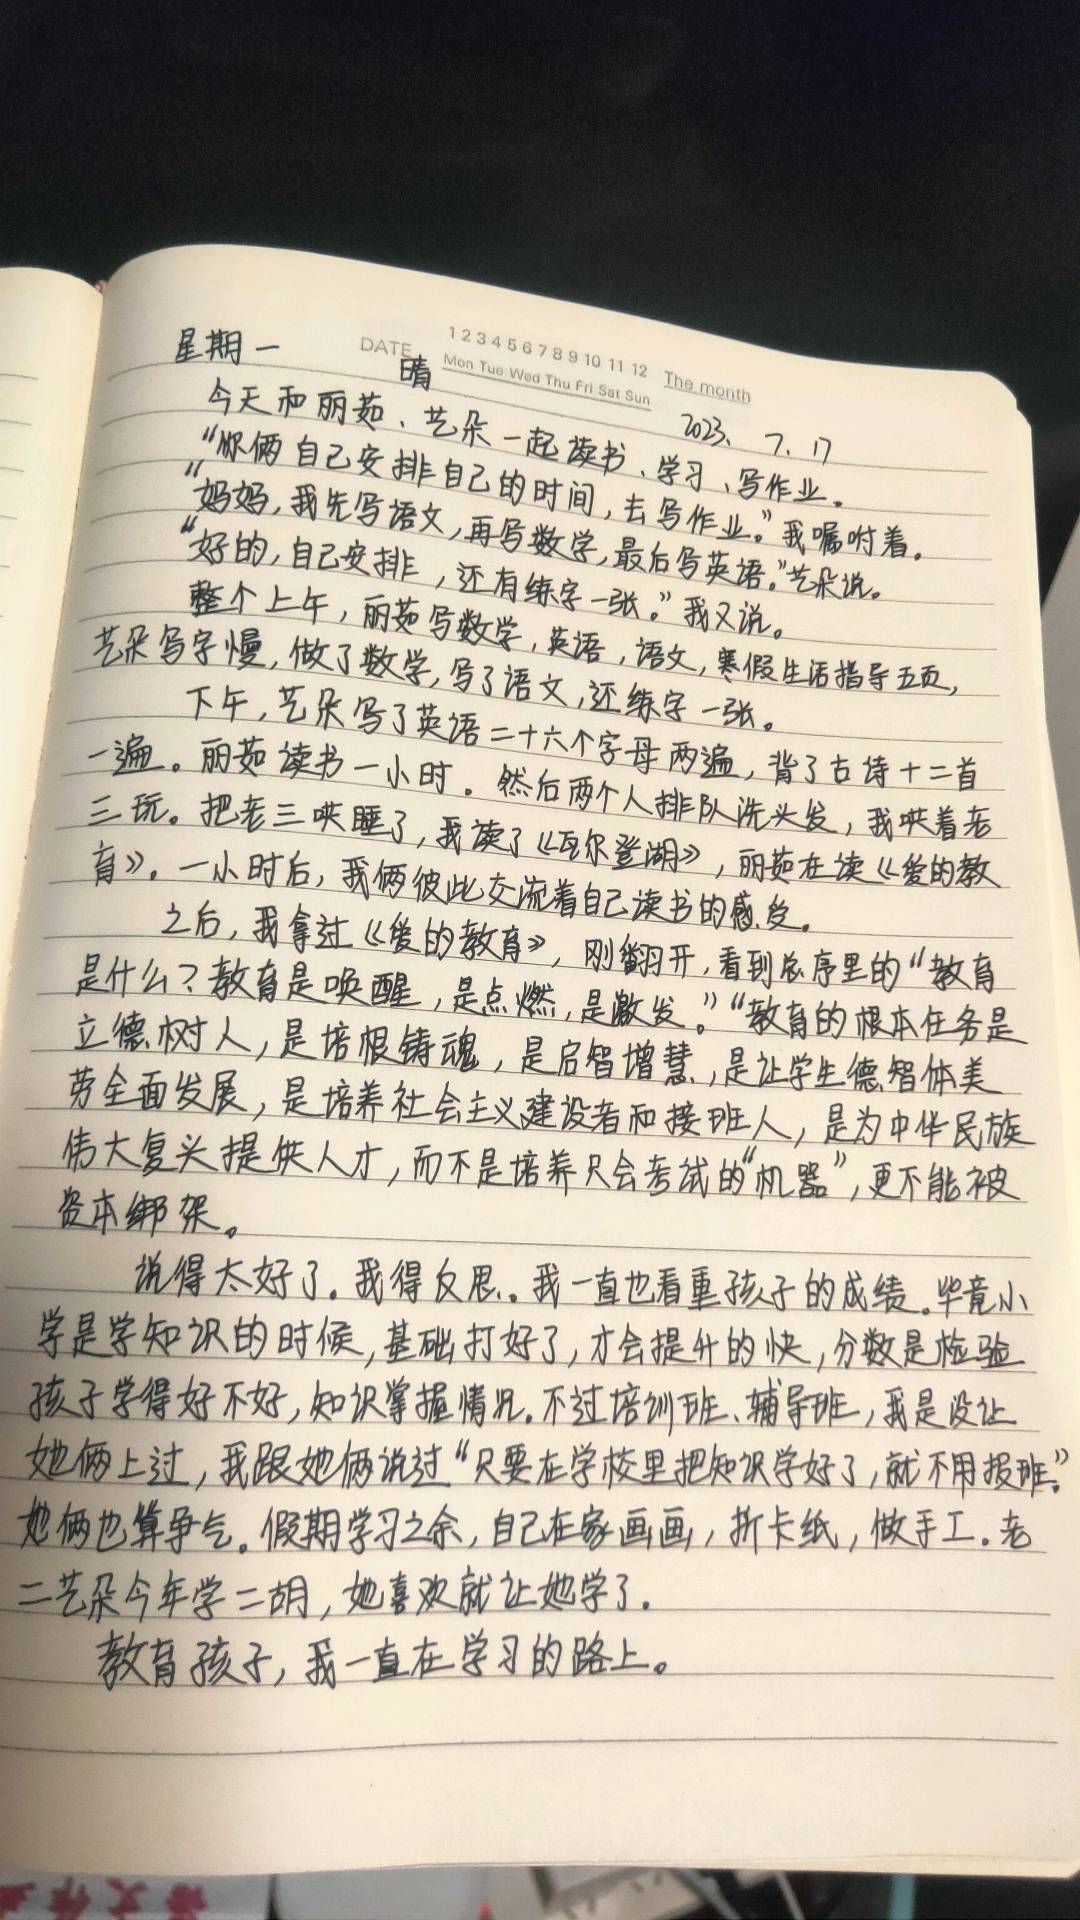 DATE 1 2 3 4 5 6 7 8 9 10 11 12 The month
Mon Tue Wed Thu Fri Sat Sun
星期一 晴 2023. 7. 17
今天和丽茹、艺朵一起读书、学习、写作业。
“你俩自己安排自己的时间,去写作业。”我嘱咐着。
“妈妈,我先写语文,再写数学,最后写英语。”艺朵说。
“好的,自己安排,还有练字一张。”我又说。
整个上午,丽茹写数学,英语,语文,寒假生活指导五页,
艺朵写字慢,做了数学,写了语文,还练字一张。
下午,艺朵写了英语二十六个字母两遍,背了古诗十二首
一遍。丽茹读书一小时。然后两个人排队洗头发,我哄着老
三玩。把老三哄睡了,我读了《瓦尔登湖》,丽茹在读《爱的教
育》。一小时后,我俩彼此交流着自己读书的感受。
之后,我拿过《爱的教育》,刚翻开,看到总序里的“教育
是什么?教育是唤醒,是点燃,是激发。”“教育的根本任务是
立德树人,是培根铸魂,是启智增慧,是让学生德智体美
劳全面发展,是培养社会主义建设者和接班人,是为中华民族
伟大复头提供人才,而不是培养只会考试的“机器”,更不能被
资本绑架。
说得太好了。我得反思。我一直也看重孩子的成绩。毕竟小
学是学知识的时候,基础打好了,才会提升的快,分数是检验
孩子学得好不好,知识掌握情况。不过培训班、辅导班,我是没让
她俩上过,我跟她俩说过“只要在学校里把知识学好了,就不用报班。”
她俩也算争气。假期学习之余,自己在家画画,折卡纸,做手工。老
二艺朵今年学二胡,她喜欢就让她学了。
教育孩子,我一直在学习的路上。